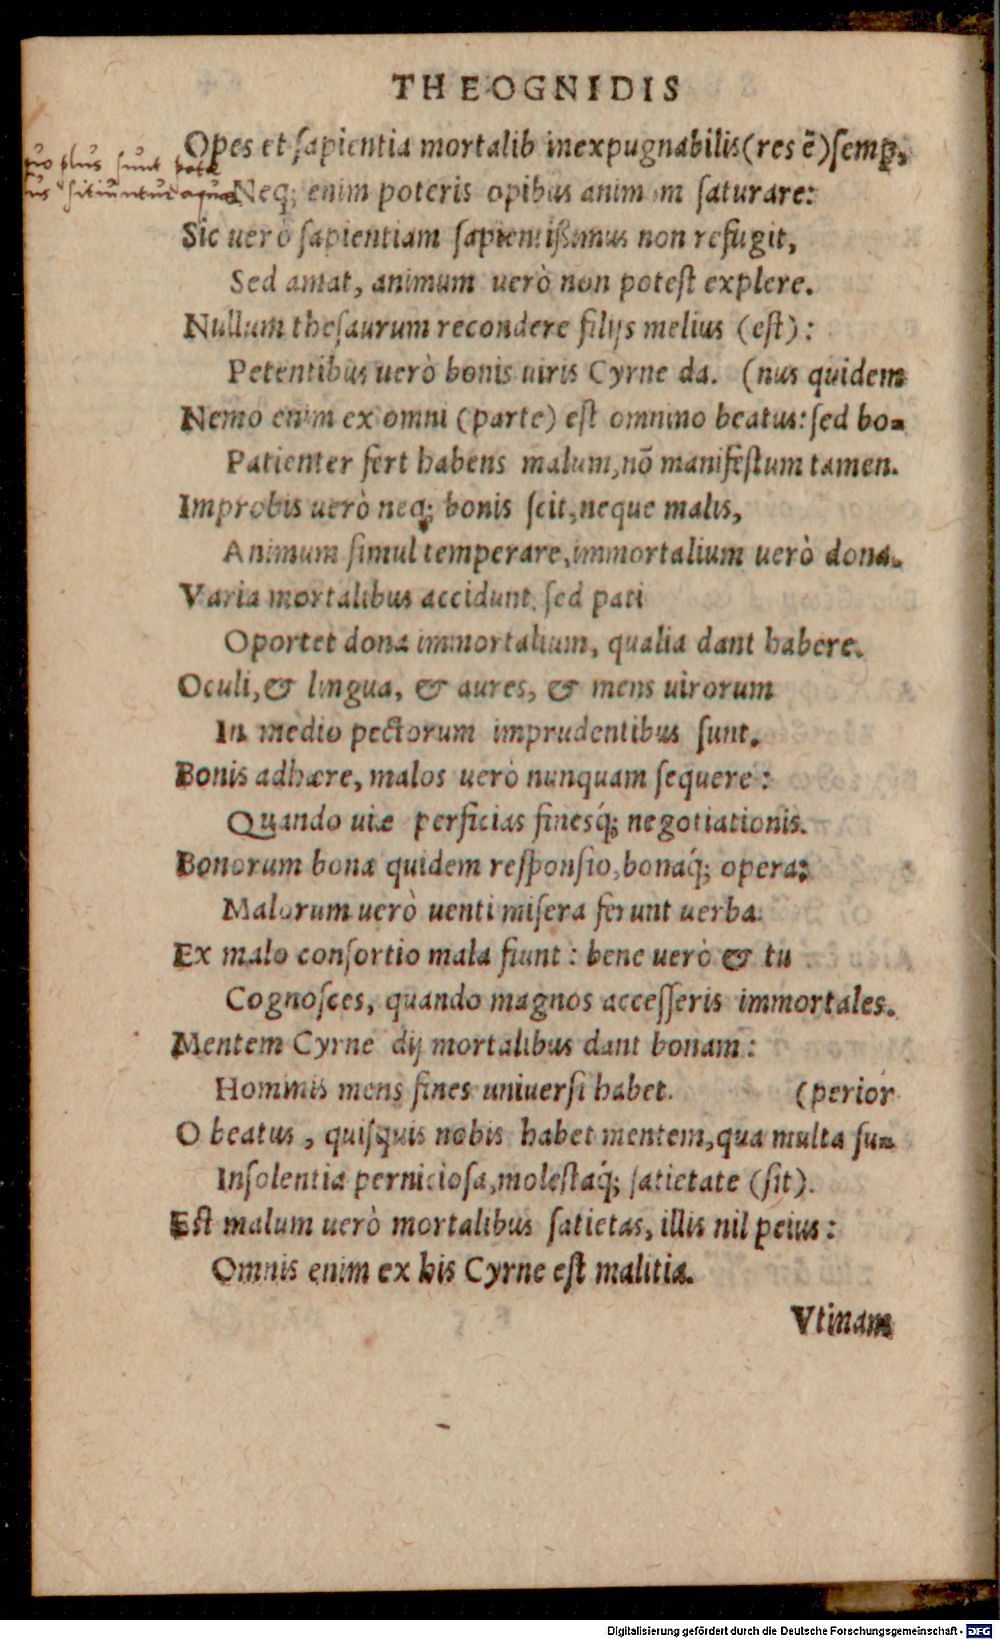 THEOGNIDIS
Opes et ſapientia mortalib inexpugnabilis (res ē) ſemꝑ,
quo plus ſunt potæ
plus ſitiuntur aquæ
Neq; enim poteris opibus animum ſaturare:
Sic uerò ſapientiam ſapientiſsimus non refugit,
Sed amat, animum uerò non poteſt explere.
Nullum theſaurum recondere filijs melius (eſt):
Petentibus uerò bonis uiris Cyrne da. (nus quidem
Nemo enim ex omni (parte) eſt omnino beatus: ſed bo-
Patienter fert habens malum, nō manifeſtum tamen.
Improbis uerò neq; bonis ſcit, neque malis,
Animum ſimul temperare, immortalium uerò dona.
Varia mortalibus accidunt, ſed pati
Oportet dona immortalium, qualia dant habere.
Oculi, & lingua, & aures, & mens uirorum
In medio pectorum imprudentibus ſunt.
Bonis adhære, malos uerò nunquam ſequere:
Quando uiæ perficias finesq́; negotiationis.
Bonorum bona quidem reſponſio, bonaq́; opera:
Malorum uerò uenti miſera ferunt uerba.
Ex malo conſortio mala fiunt: bene uerò & tu
Cognoſces, quando magnos acceſſeris immortales.
Mentem Cyrne dij mortalibus dant bonam:
Hominis mens fines uniuerſi habet. (perior
O beatus, quiſquis nobis habet mentem, qua multa ſu-
Inſolentia pernicioſa, moleſtaq́; ſatietate (ſit).
Eſt malum uerò mortalibus ſatietas, illis nil peius:
Omnis enim ex his Cyrne eſt malitia.
Vtinam
Digitalisierung gefördert durch die Deutsche Forschungsgemeinschaft - DFG